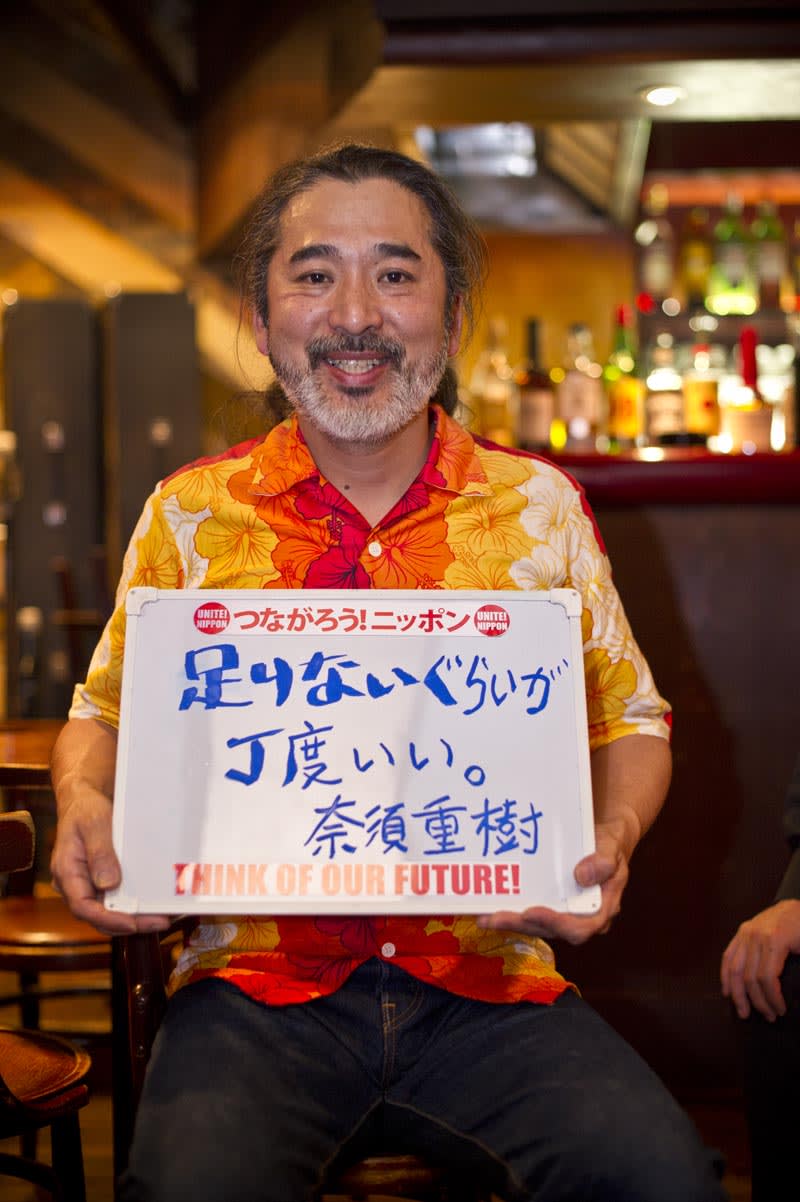 UNITE! NIPPON つながろう!ニッポン UNITE! NIPPON
足りないぐらいが
丁度いい。
奈須重樹
THINK OF OUR FUTURE!